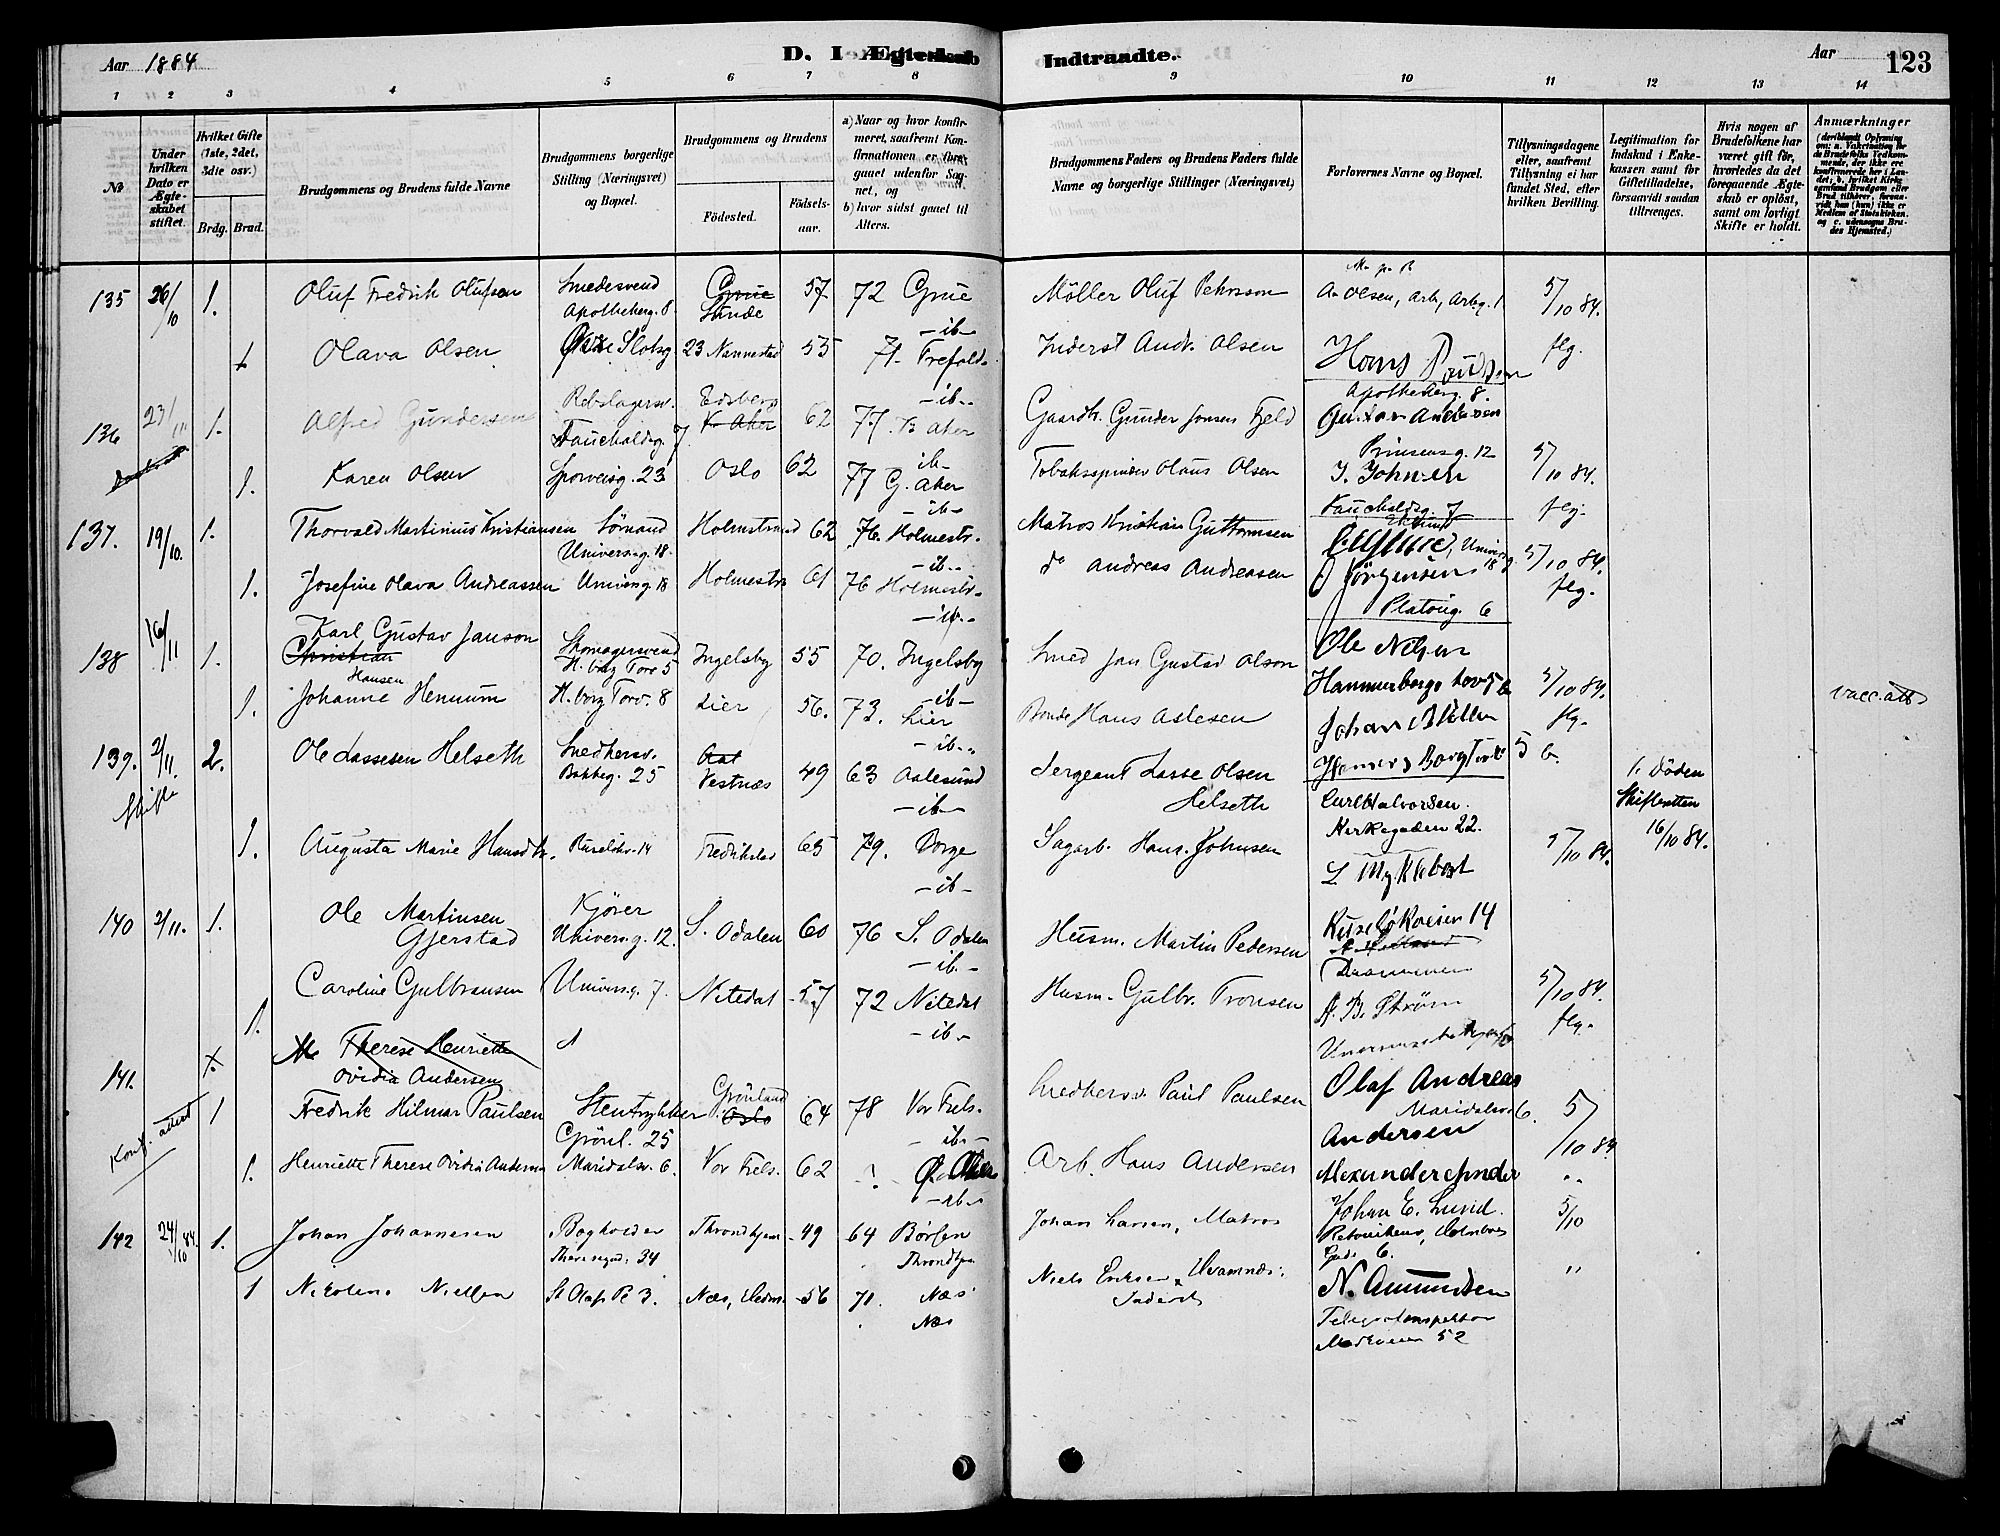 Aar 1884
D. I Ægteskab Indtraadte.
Aar 123
1 2 3 4 5 6 7 8 9 10 11 12 13 14
No
Under hvilken Dato er Ægteskabet stiftet.
Hvilket Gifte (1ste, 2det, 3die osv.)
Brdg. Brud.
Brudgommens og Brudens fulde Navne
Brudgommens borgerlige Stilling (Næringsvei) og Bopæl.
Brudgommens og Brudens
Fødested.
Fødselsaar.
a) Naar og hvor konfirmeret, saafremt Konfirmationen er foregaaet udenfor Sognet, og
b) hvor sidst gaaet til Alters.
Brudgommens Faders og Brudens Faders fulde Navne og borgerlige Stillinger (Næringsvei)
Forlovernes Navne og Bopæl.
Tillysningsdagene eller, saafremt Tillysning ei har fundet Sted, efter hvilken Bevilling.
Legitimation for Indskud i Enkekassen samt for Giftetilladelse, forsaavidt saadan tiltrænges.
Hvis nogen af Brudefolkene har været gift før, hvorledes da det foregaaende Ægteskab er opløst, samt om lovligt Skifte er holdt.
Anmærkninger
135 26/10 1. Oluf Fredrik Olufsen Smedesvend Apothekerg. 8 Grue Lunde 57 72 Grue Møller Oluf Pehrsson A. Olsen, Arb, Arbg. 1 5/10 84.
-ib-
Olava Olsen Slotsg 23 Nannestad 55 71. Trefold. Inderst Andr. Olsen Hans flg.
-ib- Apothekerg. 8.
136 23/11 1. Alfred Gundersen Rebslagersv. Fauchaldsg. 7. Edsberg V. Aker 62 77. V. Aker Gaardbr. Gunder Jonsen Fjeld Gustav Andersen
ib- Prinsensg. 12
1. Karen Olsen Sporveisg. 23 Oslo 62 77 G. Aker Tobaksspinder Olaus Olsen J. Johnsen 5/10 84.
-ib- Fauchaldsg. 7 flg.
137. 19/10. 1. Thorvald Martinius Kristiansen Sømand Universg. 18. Holmestrand 62 76. Holmestr. Matros Kristian Guttormsen Universg 18
-ib-
1. Josefine Olava Andreassen Universg. 18 Holmestr. 61 76 Holmestr. do Andreas Andreasen Jørgensen 5/10 84.
-ib- Platoug. 6 flg.
138 16/11 1. Karl Gustav Janson Christian Skomagersvend H.borg Torv 5 Ingelsby 55 70. Ingelsby Smed Jan Gustav Olson Ole Nilsen
-ib- Hammerborgs torv 5 b 5/10 84.
1. Johanne Hansen Hennum H.borg Torv. 8 Lier 56. 73. Lier Bonde Hans Aslesen Johan flg. vacc. att
-ib-
139. 2/11. 2. Ole Lassesen Helseth Snedkersv. Bakkeg. 25 Aal Vestnæs 49 63 Aalesund Sergeant Lasse Olsen Helseth Hammersborg Torv 5 b.
-ib- Carl Halvorsen. 1. Døden
Skifte Kirkegaden 22. Skifteretten 16/10 84.
1. Augusta Marie Hansdtr. Ruseløkv. 14 Fredrikstad 65 79. Borge Sagarb. Hans Johnsen L. Myklebost 5/10 84.
-ib-
140 2/11. 1. Ole Martinsen Gjerstad Kjører Universg. 12. S. Odalen 60 76 S. Odalen Husm. Martin Pedersen Ruseløkveien 14
-ib- Drammen
1. Caroline Gulbransen Universg. 7. Nitedal 57 72 Nitedal Husm. Gulbr. Tronsen A. B. Strøm 5/10 84.
-ib- flg.
141. Therese Henriette Ovidia Andersen
1 Fredrik Hilmar Paulsen Stentrykker Grønl. 25 Grønland Oslo 64 78 Vor Frels. Snedkersv. Paul Paulsen Olaf Andreas Andersen Maridalsv. 6. 5/10 84.
Konf. attest -ib-
1. Henriette Therese Ovidia Andersen Maridalsv. 6. Vor Frels. 62 Ø. Aker Arb. Hans Andersen Alexander Ander
-ib-
142 24/10 84. 1. Johan Johannesen Bogholder Theresesgd. 34 Throndhjem 49 64 Børsen Throndhjem Johan Larsen, Matros Johan E. Lund. 5/10
Gade 6.
1 Nikoline Nielsen St Olafs Pl 3. Næs, Hedm. 56 71. Næs Næs Niels Eriksen Inderst N. Amundsen "
Telegrafinspektør
52